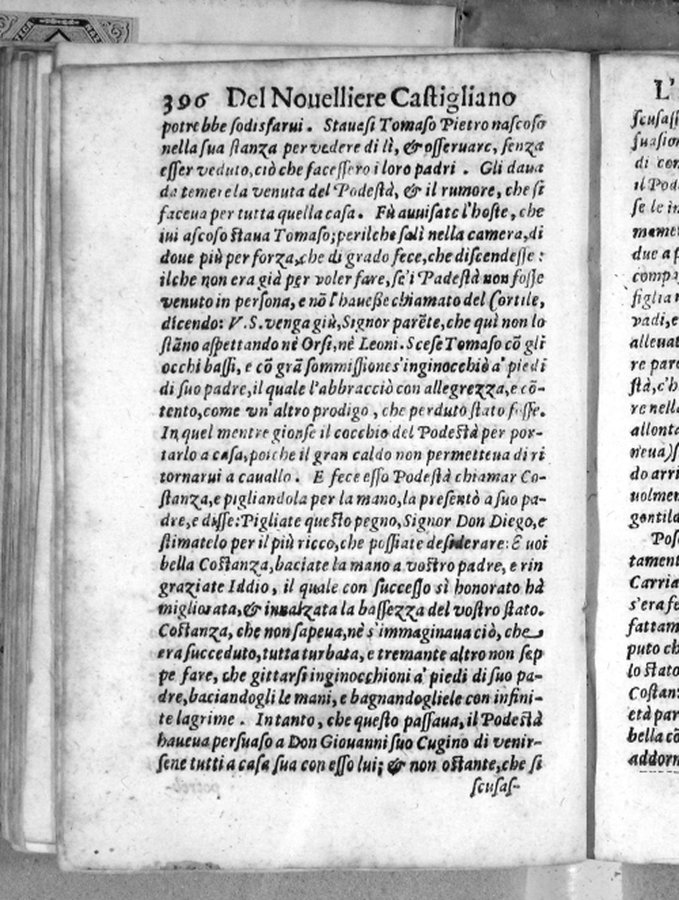 396 Del Nouelliere Castigliano
potrebbe sodisfarui. Stauesi Tomaso Pietro nascoso
nella sua stanza per vedere di lì, & osseruare, senza
esser veduto, ciò che facessero i loro padri. Gli daua
da temere la venuta del Podestà, & il rumore, che si
faceua per tutta quella casa. Fù auuisato l'hoste, che
iui ascoso staua Tomaso; perilche salì nella camera, di
doue più per forza, che di grado fece, che discendesse:
ilche non era già per voler fare, se'l Padestà non fosse
venuto in persona, e nõ l'hauesse chiamato del Cortile,
dicendo: V.S. venga giù, Signor parẽte, che quì non lo
stãno aspettando nè Orsi, nè Leoni. Scese Tomaso cõ gli
occhi bassi, e cõ grã sommissione s'inginocchiò a' piedi
di suo padre, il quale l'abbracciò con allegrezza, e cõ-
tento, come vn' altro prodigo, che perduto stato fosse.
In quel mentre gionse il cocchio del Podestà per por-
tarlo a casa, poiche il gran caldo non permetteua di ri
tornarui a cauallo. E fece esso Podestà chiamar Co-
stanza, e pigliandola per la mano, la presentò a suo pa-
dre, e disse: Pigliate questo pegno, Signor Don Diego, e
stimatelo per il più ricco, che possiate desiderare: E voi
bella Costanza, baciate la mano a vostro padre, e rin
graziate Iddio, il quale con successo sì honorato hà
migliorata, & inalzata la bassezza del vostro stato.
Costanza, che non sapeua, nè s'immaginaua ciò, che
era succeduto, tutta turbata, e tremante altro non sep
pe fare, che gittarsi inginocchioni a' piedi di suo pa-
dre, baciandogli le mani, e bagnandogliele con infini-
te lagrime. In tanto, che questo passaua, il Podestà
haueua persuaso a Don Giouanni suo Cugino di venir-
sene tutti a casa sua con esso lui; & non ostante, che si
scusas-
L'
scusassi
suasion
di con
il Pod
se le in
mamen
due a p
compa
figlia n
vadi, e
alleuat
re pare
stà, c'h
re nella
allonta
neua) s
do arri
uolmen
gentild
Pos
tament
Carria
s'era fe
fattam
puto ch
lo stato
Costan
età par
bella cõ
addorn